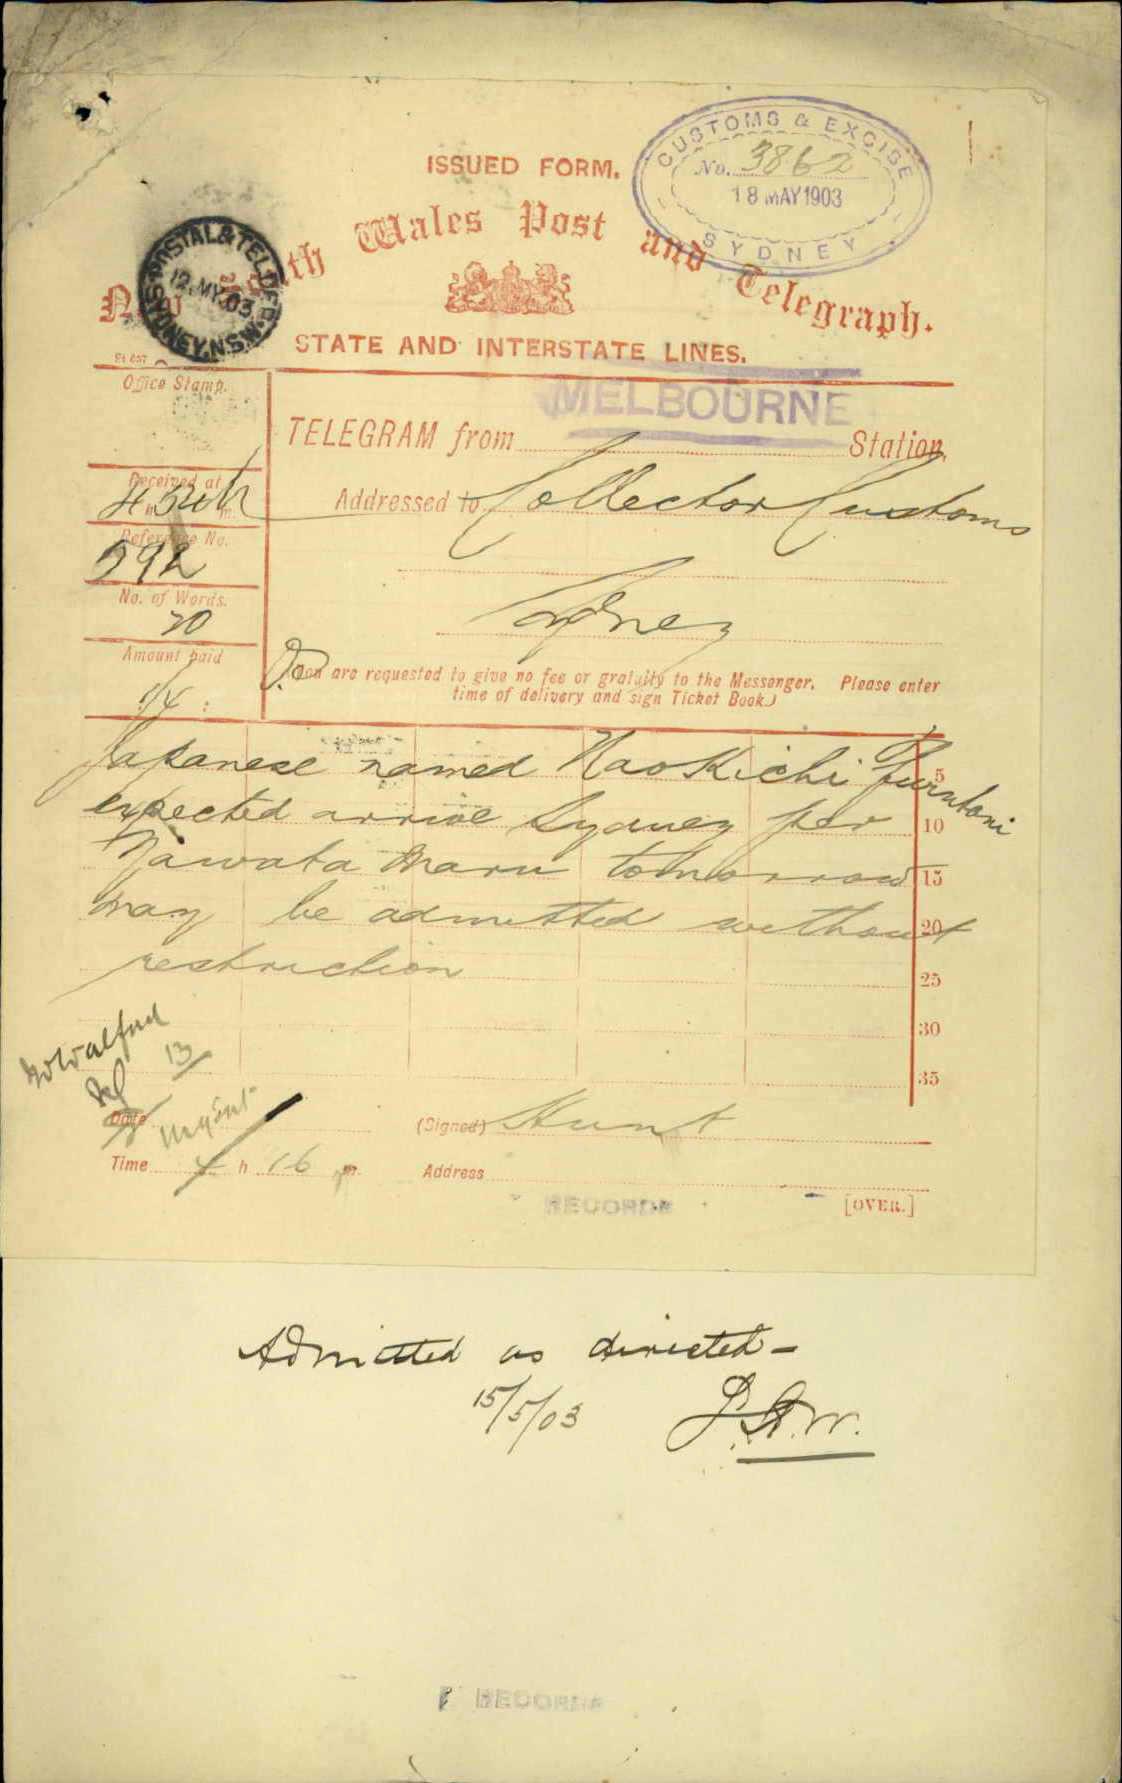 CUSTOMS & EXCISE
No. 3862
18 MAY 1903
SYDNEY
ISSUED FORM.
New South Wales Post and Telegraph.
POSTAL & TEL. DEP.
12.MY.03
SYDNEY.N.S.W.
STATE AND INTERSTATE LINES.
Office Stamp.
MELBOURNE
TELEGRAM from Station,
Received at
Addressed to Collector Customs
Reference No.
292
Sydney
No. of Words.
20
Amount paid
1/4 :
You are requested to give no fee or gratuity to the Messenger. Please enter
time of delivery and sign Ticket Book.)
Japanese named Naokichi Furutani 5
expected arrive Sydney per 10
Yawata Maru tomorrow 15
may be admitted without 20
restriction 25
30
35
13/
Date
(Signed) Hunt
Time 4 h 16 pm
Address
RECORDS
[OVER.]
Admitted as directed -
15/5/03
RECORDS